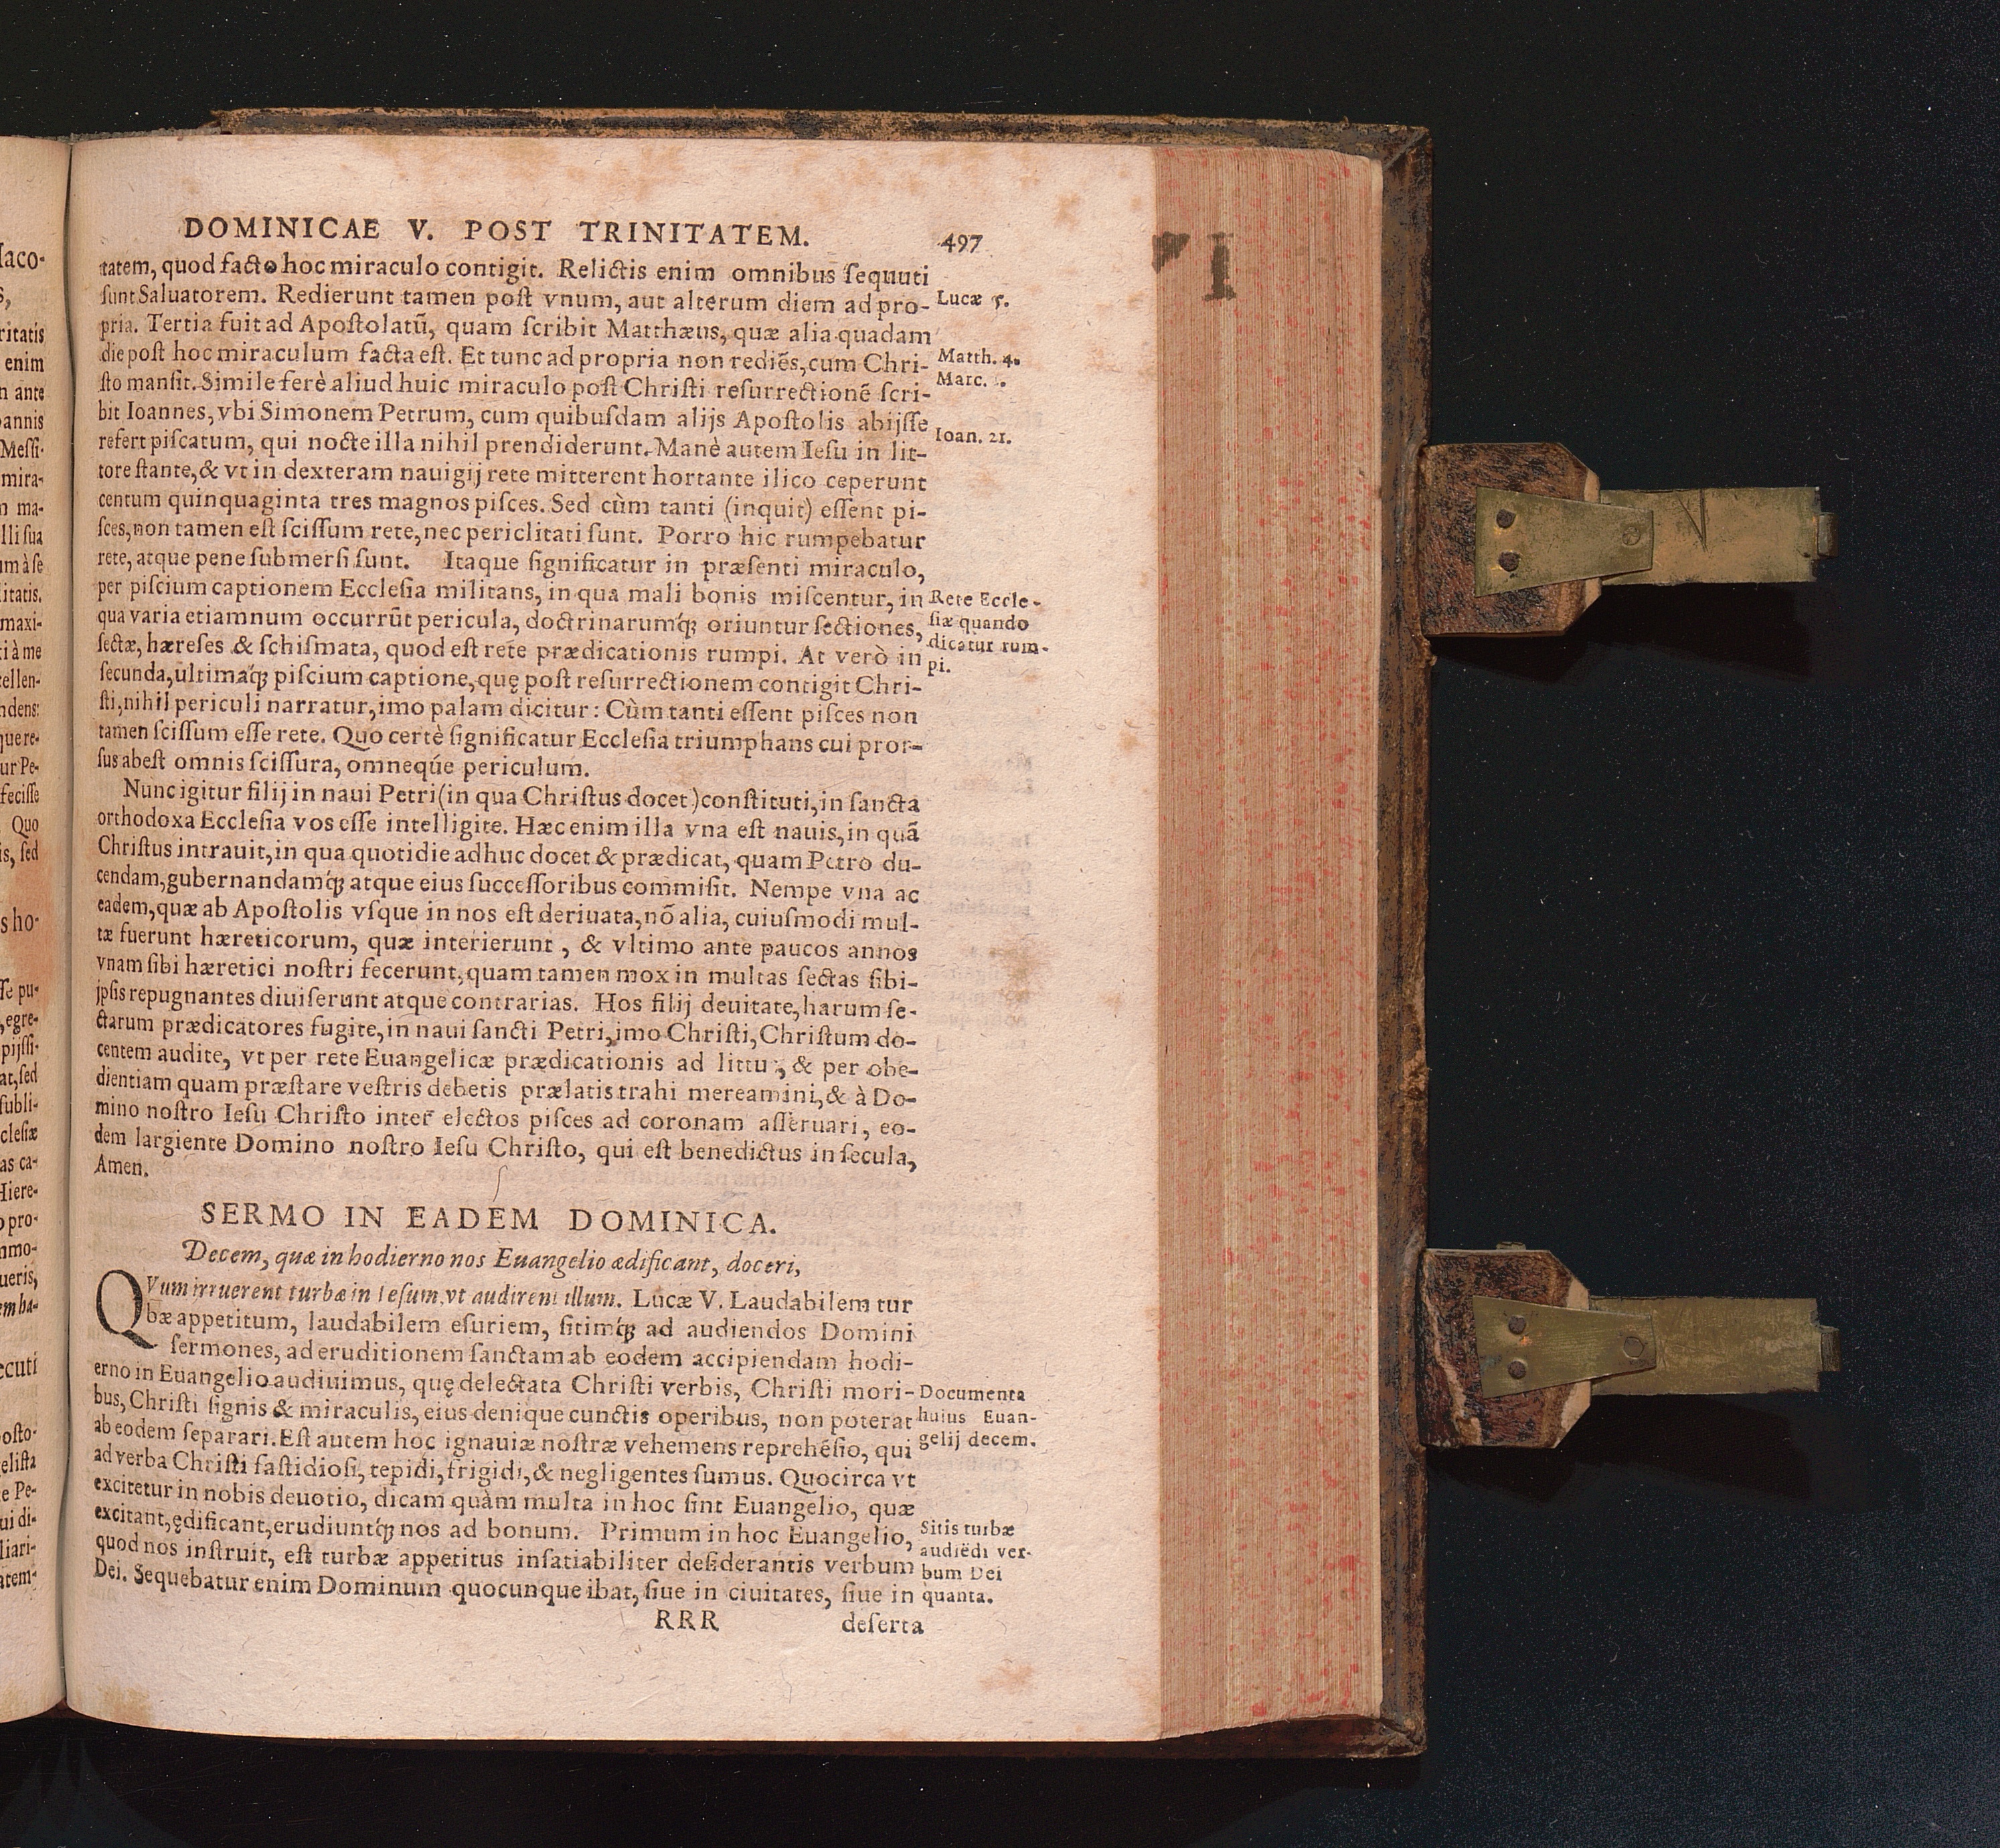 DOMINICAE V. POST TRINITATEM. 497
tatem, quod facto hoc miraculo contigit. Relictis enim omnibus ſequuti
ſunt Saluatorem. Redierunt tamen poſt vnum, aut alterum diem ad pro-
Lucæ 5.
pria. Tertia fuit ad Apoſtolatũ, quam ſcribit Matthæus, quæ alia quadam
die poſt hoc miraculum facta eſt. Et tunc ad propria non rediẽs, cum Chri-
Matth. 4.
ſto manſit. Simile ferè aliud huic miraculo poſt Chriſti reſurrectionẽ ſcri-
Marc.
bit Ioannes, vbi Simonem Petrum, cum quibuſdam alijs Apoſtolis abijſſe
Ioan. 21.
refert piſcatum, qui nocte illa nihil prendiderunt. Manè autem Ieſu in lit-
tore ſtante, & vt in dexteram nauigij rete mitterent hortante ilico ceperunt
centum quinquaginta tres magnos piſces. Sed cùm tanti (inquit) eſſent pi-
ſces, non tamen eſt ſciſſum rete, nec periclitati ſunt. Porro hic rumpebatur
rete, atque pene ſubmerſi ſunt. Itaque ſignificatur in præſenti miraculo,
per piſcium captionem Eccleſia militans, in qua mali bonis miſcentur, in
Rete Eccle-
qua varia etiamnum occurrũt pericula, doctrinarumq́; oriuntur ſectiones,
ſiæ quando
ſectæ, hæreſes & ſchiſmata, quod eſt rete prædicationis rumpi. At verò in
dicatur rum-
pi.
ſecunda, ultimaq́; piſcium captione, quę poſt reſurrectionem contigit Chri-
ſti, nihil periculi narratur, imo palam dicitur: Cùm tanti eſſent piſces non
tamen ſciſſum eſſe rete. Quo certè ſignificatur Eccleſia triumphans cui pror-
ſus abeſt omnis ſciſſura, omneqúe periculum.
Nunc igitur filij in naui Petri (in qua Chriſtus docet) conſtituti, in ſancta
orthodoxa Eccleſia vos eſſe intelligite. Hæc enim illa vna eſt nauis, in quã
Chriſtus intrauit, in qua quotidie adhuc docet & prædicat, quam Petro du-
cendam, gubernandamq́; atque eius ſucceſſoribus commiſit. Nempe vna ac
eadem, quæ ab Apoſtolis vſque in nos eſt deriuata, nõ alia, cuiuſmodi mul-
tæ fuerunt hæreticorum, quæ interierunt, & vltimo ante paucos annos
vnam ſibi hæretici noſtri fecerunt, quam tamen mox in multas ſectas ſibi-
jpſis repugnantes diuiſerunt atque contrarias. Hos filij deuitate, harum ſe-
ctarum prædicatores fugite, in naui ſancti Petri, imo Chriſti, Chriſtum do-
centem audite, vt per rete Euangelicæ prædicationis ad littu, & per obe-
dientiam quam præſtare veſtris debetis prælatis trahi mereamini, & à Do-
mino noſtro Ieſu Chriſto inter electos piſces ad coronam aſſeruari, eo-
dem largiente Domino noſtro Ieſu Chriſto, qui eſt benedictus in ſecula,
Amen.
SERMO IN EADEM DOMINICA.
Decem, quæ in hodierno nos Euangelio ædificant, doceri,
QVum irruerent turbæ in Ieſum, vt audirent illum. Lucæ V. Laudabilem tur
bæ appetitum, laudabilem eſuriem, ſitimq́; ad audiendos Domini
ſermones, ad eruditionem ſanctam ab eodem accipiendam hodi-
erno in Euangelio audiuimus, quę delectata Chriſti verbis, Chriſti mori-
Documenta
bus, Chriſti ſignis & miraculis, eius denique cunctis operibus, non poterat
huius Euan-
ab eodem ſeparari. Eſt autem hoc ignauiæ noſtræ vehemens reprehẽſio, qui
gelij decem.
ad verba Chriſti faſtidioſi, tepidi, frigidi, & negligentes ſumus. Quocirca vt
excitetur in nobis deuotio, dicam quàm multa in hoc ſint Euangelio, quæ
excitant, ędificant, erudiuntq́; nos ad bonum. Primum in hoc Euangelio,
Sitis turbæ
quod nos inſtruit, eſt turbæ appetitus inſatiabiliter deſiderantis verbum
audiẽdi ver-
bum Dei
Dei. Sequebatur enim Dominum quocunque ibat, ſiue in ciuitates, ſiue in
quanta.
RRR deſerta